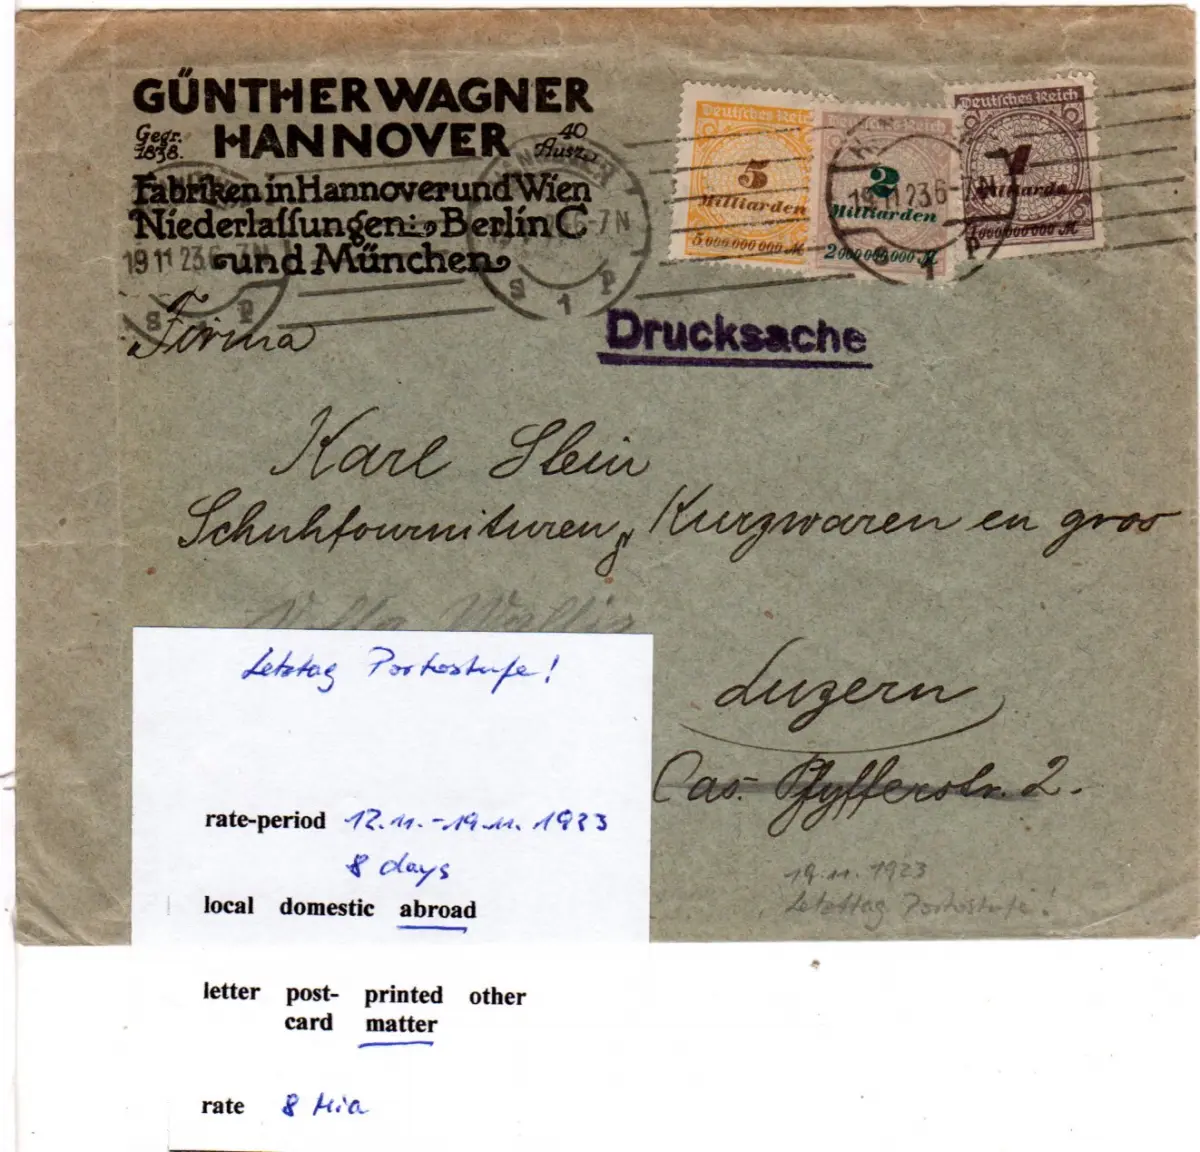 GÜNTHER WAGNER
Gegr. 1838. HANNOVER 40 Ausz.
Fabriken in Hannover und Wien
Niederlassungen: Berlin C
und München
19 11 23 6-7N
S 1 P
Deutsches Reich
5
Milliarden
5 000 000 000 M
Deutsches Reich
2
Milliarden
2 000 000 000 M
Deutsches Reich
1
Milliarde
1 000 000 000 M
19 11 23 6-7N
Drucksache
Firma
Karl Stein
Schuhfournituren, Kurzwaren en gros
Villa
Luzern
Cas. Pfyfferstr. 2.
19.11.1923
Letzttag Portostufe!
Letzttag Portostufe!
rate-period 12.11.-19.11.1923
8 days
local domestic abroad
letter post- printed other
card matter
rate 8 Mia